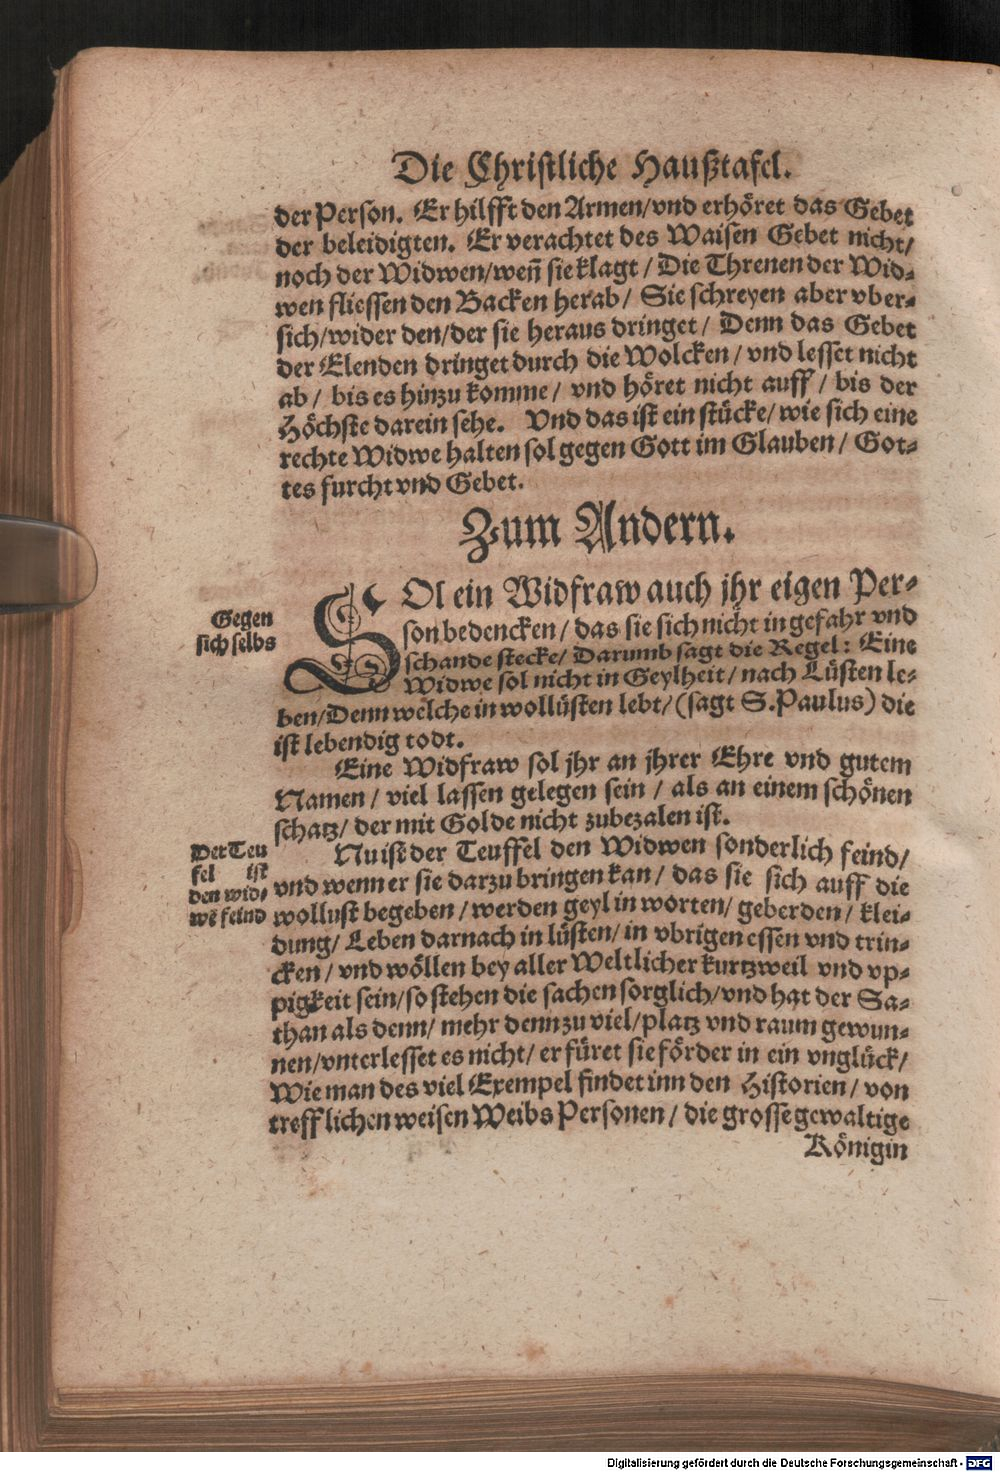 Die Christliche Haußtafel.
der Person. Er hilfft den Armen/vnd erhöret das Gebet
der beleidigten. Er verachtet des Waisen Gebet nicht/
noch der Widwen/weñ sie klagt / Die Threnen der Wid-
wen fliessen den Backen herab/ Sie schreyen aber vber-
sich/wider den/der sie heraus dringet/ Denn das Gebet
der Elenden dringet durch die Wolcken / vnd lesset nicht
ab / bis es hinzu komme/ vnd höret nicht auff / bis der
Höchste darein sehe. Vnd das ist ein stücke/ wie sich eine
rechte Widwe halten sol gegen Gott im Glauben / Got-
tes furcht vnd Gebet.
Zum Andern.
Gegen
sich selbs
SOl ein Widfraw auch jhr eigen Per-
son bedencken / das sie sich nicht in gefahr vnd
schande stecke/ Darumb sagt die Regel: Eine
Widwe sol nicht in Geylheit / nach Lüsten le-
ben/Denn welche in wollüsten lebt/ (sagt S.Paulus) die
ist lebendig todt.
Eine Widfraw sol jhr an jhrer Ehre vnd gutem
Namen / viel lassen gelegen sein / als an einem schönen
schatz/ der mit Golde nicht zubezalen ist.
Der Teu
fel ist
den wid-
wē feind
Nu ist der Teuffel den Widwen sonderlich feind/
vnd wenn er sie darzu bringen kan / das sie sich auff die
wollust begeben / werden geyl in worten/ geberden / klei-
dung/ Leben darnach in lüsten/ in vbrigen essen vnd trin-
cken / vnd wöllen bey aller Weltlicher kurtzweil vnd vp-
pigkeit sein/so stehen die sachen sorglich/vnd hat der Sa-
than als denn/ mehr denn zu viel/platz vnd raum gewun-
nen/vnterlesset es nicht/ er füret sie förder in ein vnglück/
Wie man des viel Exempel findet inn den Historien / von
trefflichen weisen Weibs Personen / die grosse gewaltige
Königin
Digitalisierung gefördert durch die Deutsche Forschungsgemeinschaft - DFG